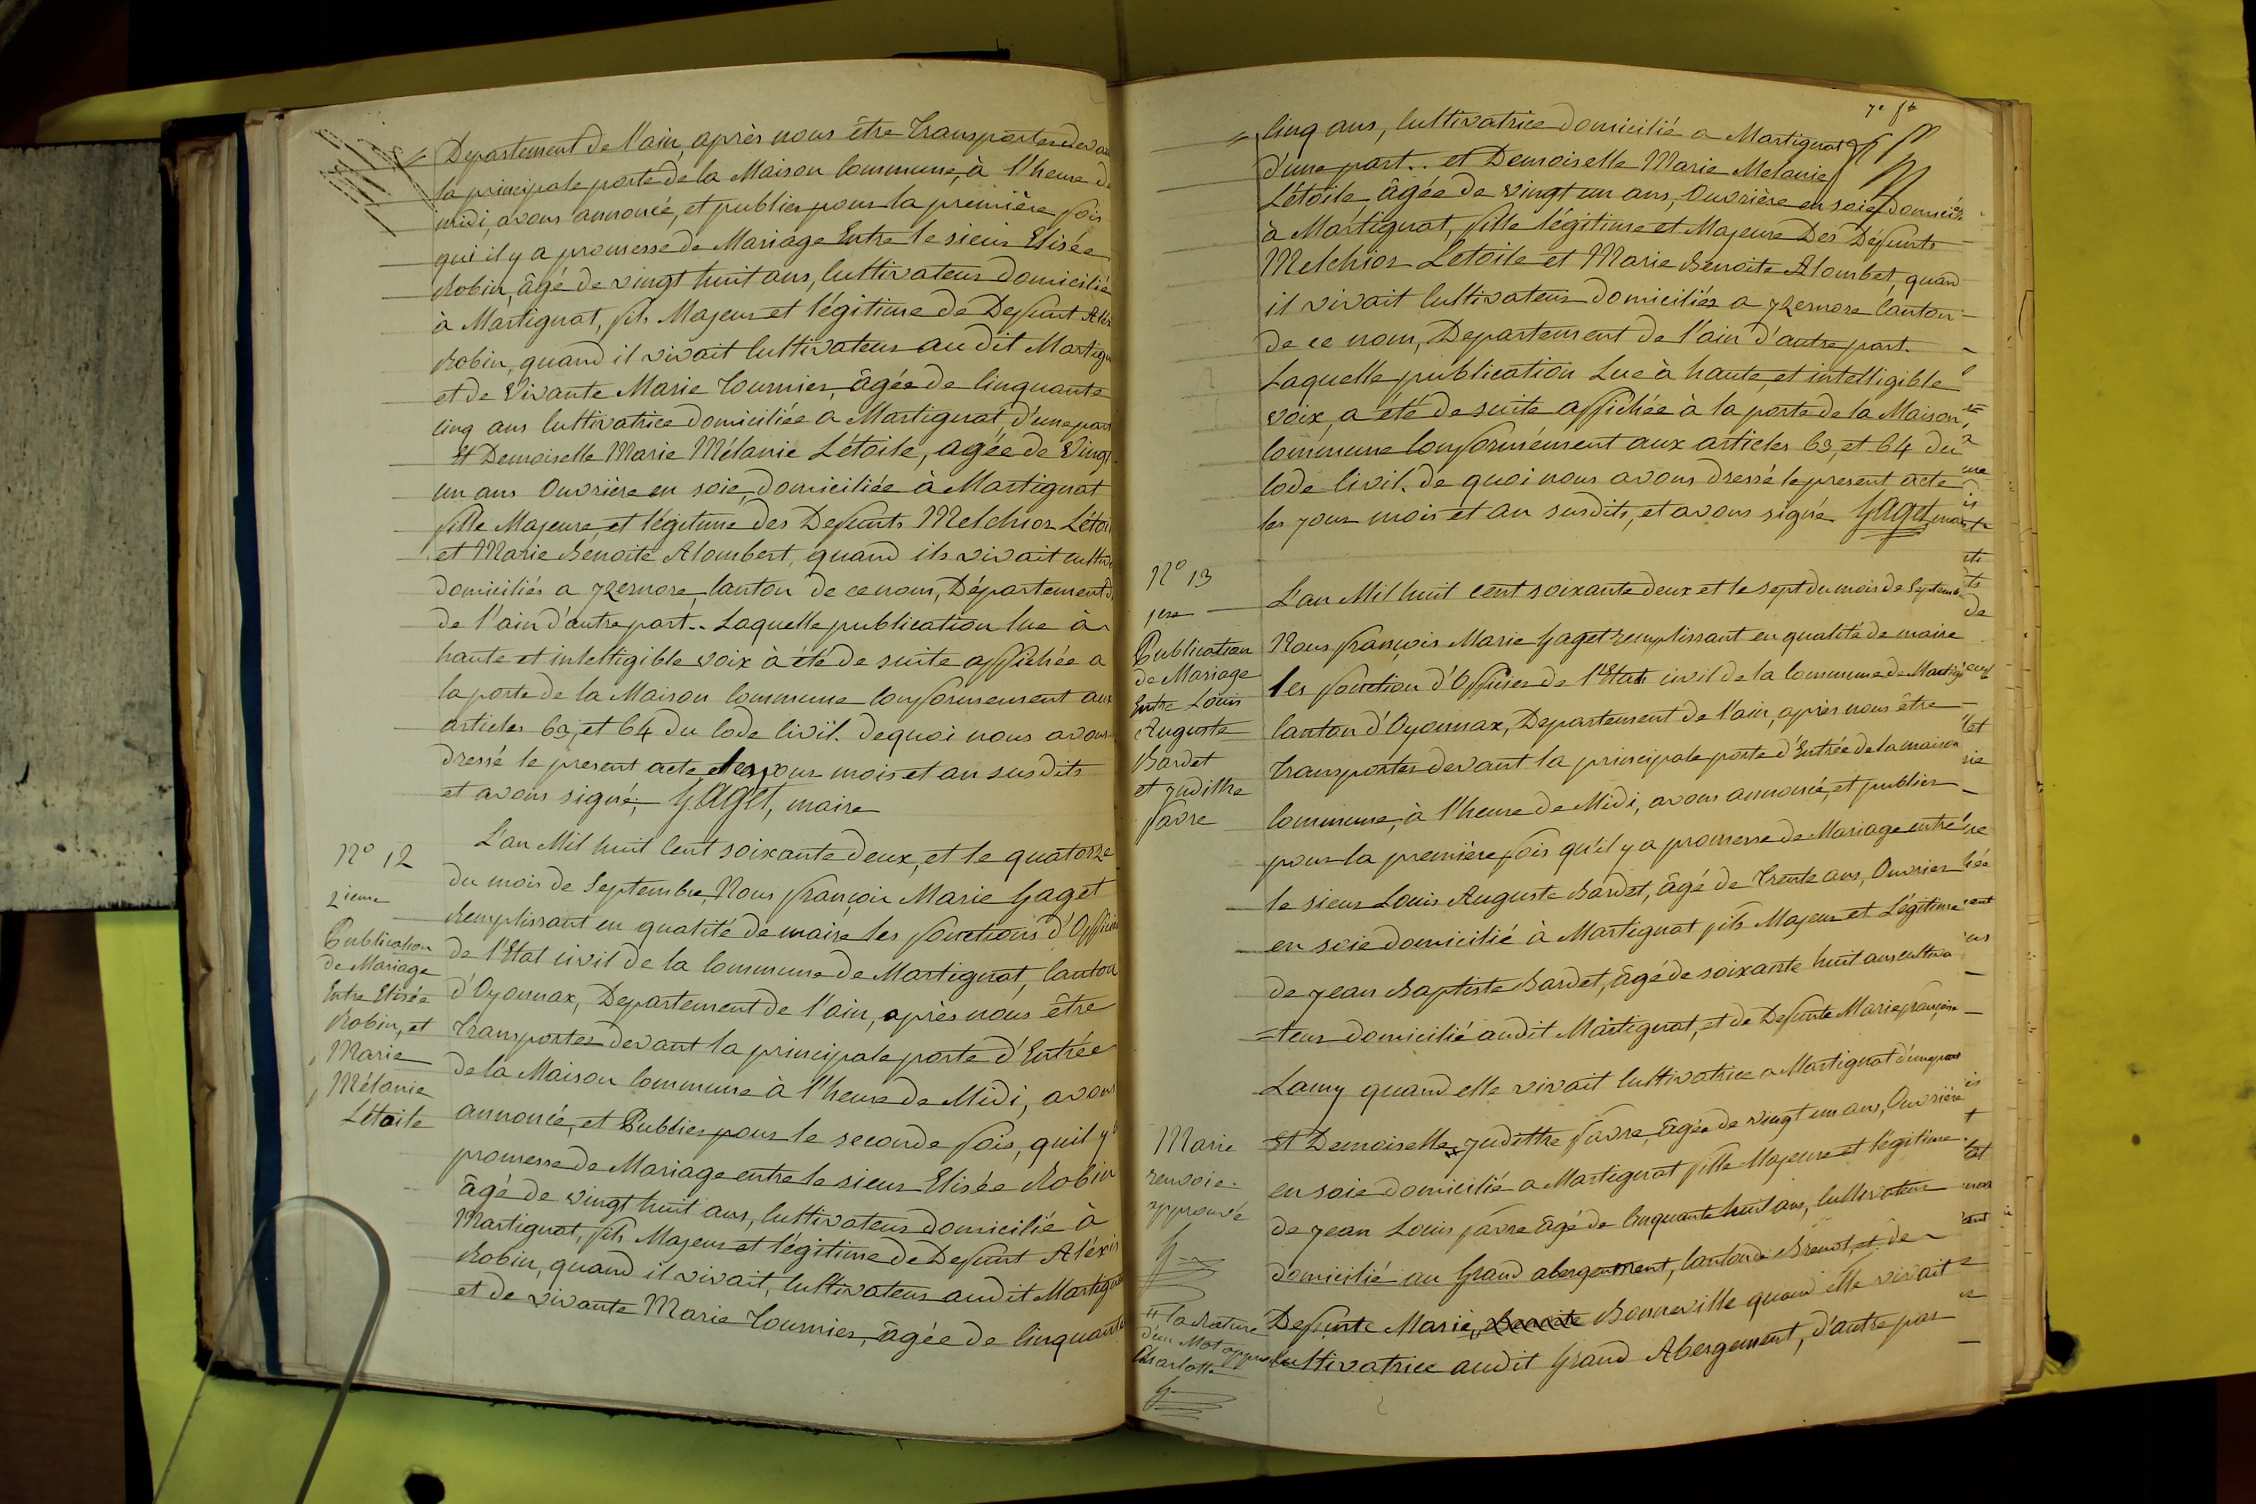 Departement de l'ain, après nous être Transportés devant
la principale porte de la Maison Commune, à l'heure de
midi, avons annoncé, et publier pour la première fois
qui il y a promesse de Mariage Entre le sieur Elisée
Robin, âgé de vingt huit ans, Cultivateur domicilié
à Martignat, fils Majeur et légitime de Defunt
Robin, quand il vivait Cultivateur au dit
et de Vivante Marie Tournier, âgée de Cinquante
Cinq ans Cultivatrice domiciliée a Martignat, d'une part
Et Demoiselle Marie Mélanie Létoile, agée de Vingt
un ans Ouvrière en soie, domiciliée à Martignat
fille Majeure et légitime des Defunts Melchior
et Marie Bénoite Alombert, quand ils vivait
domiciliés a yzernore, Canton de ce nom, Département
de l'ain d'autre part.. Laquelle publication lue à
haute et intelligible voix à été de suite affichée a
la porte de la Maison Commune Conformement aux
articles 63, et 64 du Code Civil. de quoi nous avons
dressé le present acte, les jour mois et an susdits
et avons signé, Gaget, maire
N° 12
2ieme
Publication
de Mariage
Entre Elisée
Robin, et
Marie
Mélanie
Létoile
L'an Mil huit Cent soixante deux, et le quatorze
du mois de Septembre, Nous françois Marie Gaget
Remplissant en qualité de maire les fonctions d'Officier
de l'Etat civil de la Commune de Martignat, Canton
d'Oyonnax, Departement de l'ain, après nous être
Transportés devant la principale porte d'Entrée
de la Maison Commune à l'heure de Midi, avons
annoncée, et Publier pour le seconde fois, quil y
promesse de Mariage entre le sieur Elisée Robin
âgé de vingt huit ans, Cultivateur domicilié à
Martignat, fils Majeur et légitime de Defunt Aléxis
Robin, quand il vivait, Cultivateur audit
et de vivante Marie Tournier, âgée de Cinquante
7e ft
Cinq ans, Cultivatrice domicilié a Martignat
d'une part.. et Demoiselle Marie Melanie
Létoile, âgée de vingt un ans, Ouvrière en soie
à Martignat, fille légitime et Majeure Des Défunts
Melchior Letoile et Marie Benoite Alombet, quand
il vivait Cultivateur domiciliés a yzernore Canton
de ce nom, Departement de l'ain d'autre part.
Laquelle publication Lue à haute, et intelligible
voix, a été de suite affichée à la porte de la Maison,
Commune Conformément aux articles 63, et 64 du
Code Civil. de quoi nous avons dressé le present acte
les jour mois et an susdits, et avons signé Gaget
N° 13
1ere
Publication
de Mariage
Entre Louis
Auguste
Bardet
et Judithe
favre
L'an Mil huit cent soixante deux et le sept du mois de Septembre
Nous françois Marie Gaget remplissant en qualité de maire
les fonction d'Officier de l'Etat civil de la Commune de
Canton d'Oyonnax, Departement de l'ain, après nous être
Transportés devant la principale porte d'Entrée de la maison
Commune, à l'heure de Midi, avons annoncé, et publier
pour la première fois qu'il y a promesse de Mariage entre
le sieur Louis Auguste Bardet, âgé de Trente ans, Ouvrier
en soie domicilié à Martignat fils Majeur et Légitime
de Jean Baptiste Bardet, âgé de soixante huit ans cultiva
=teur domicilié audit Martignat, et de Defunte Marie françoise
Lamy quand elle vivait Cultivatrice a Martignat d'une part
Et Demoiselle Judithe favre, âgée de vingt un ans, Ouvrière
en soie domicilié a Martignat fille Majeure et légitime
de Jean Louis favre âgé de Cinquante huit ans, Cultivateur
domicilié au Grand abergement, Canton de Brenot, et de
Defunte Marie, Benoite Bonneville quand elle vivait
Cultivatrice audit Grand Abergement, d'autre par
Marie
renvoie
approuvé
la Rature
d'un Mot
Charlotte